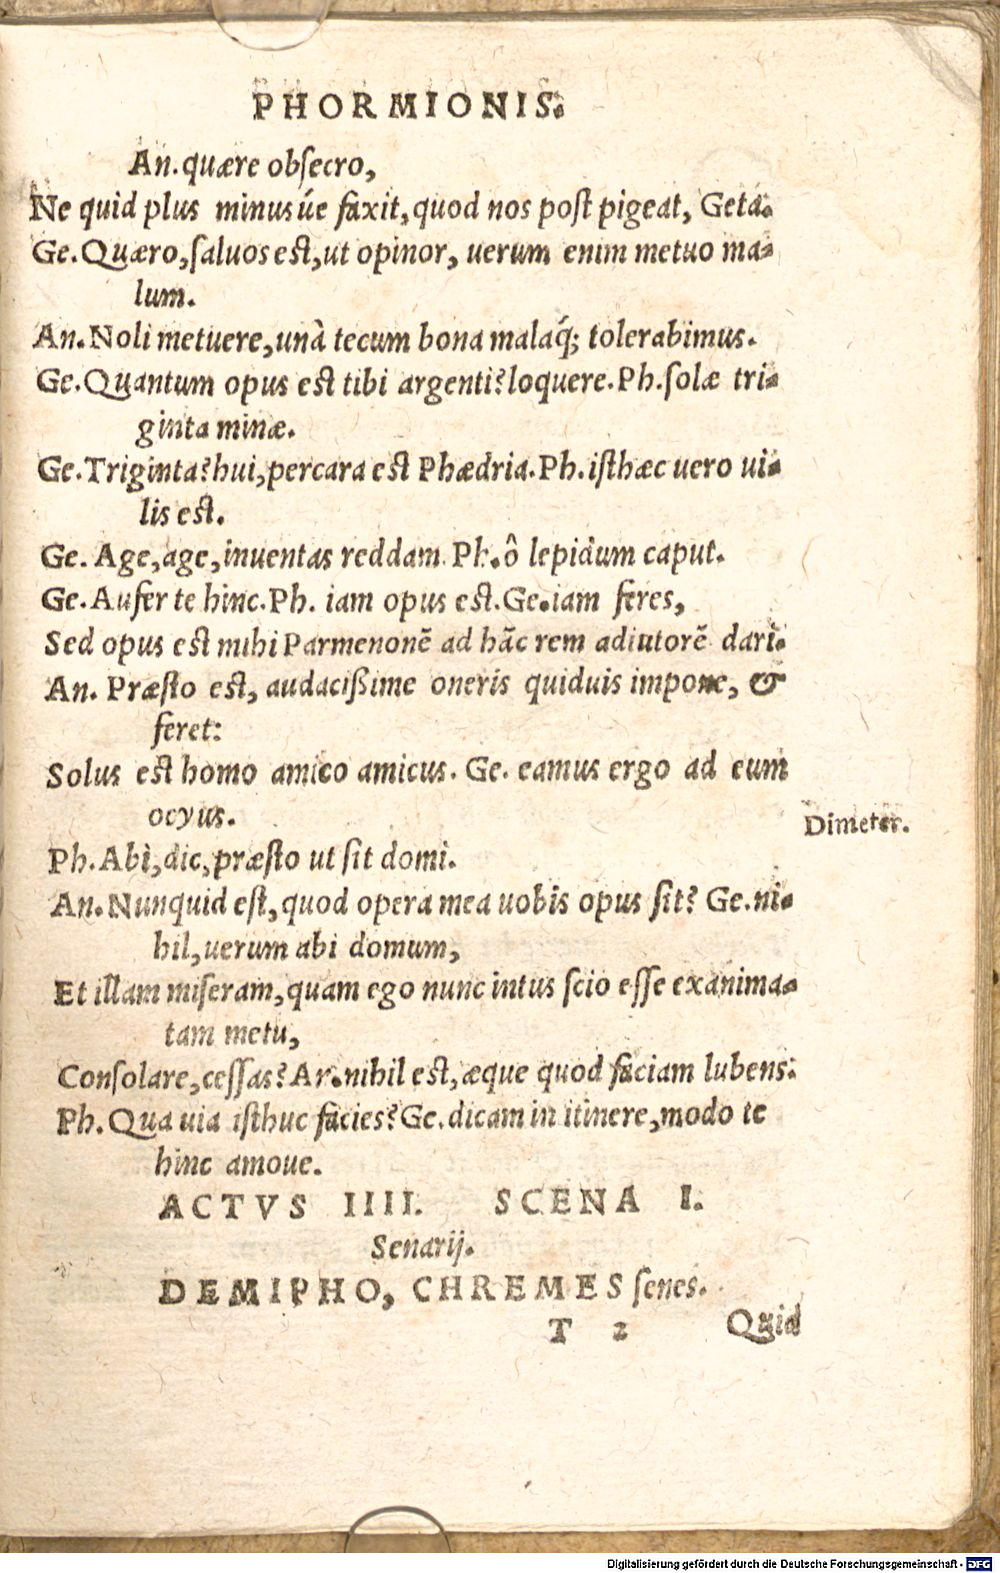 PHORMIONIS.
An. quære obſecro,
Ne quid plus minusúe faxit, quod nos poſt pigeat, Geta.
Ge. Quæro, ſaluos eſt, ut opinor, uerum enim metuo ma-
lum.
An. Noli metuere, unà tecum bona malaq́; tolerabimus.
Ge. Quantum opus eſt tibi argenti? loquere. Ph. ſolæ tri-
ginta minæ.
Ge. Triginta? hui, percara eſt Phædria. Ph. iſthæc uero ui-
lis eſt.
Ge. Age, age, inuentas reddam. Ph. ô lepidum caput.
Ge. Aufer te hinc. Ph. iam opus eſt. Ge. iam feres,
Sed opus eſt mihi Parmenonẽ ad hãc rem adiutorẽ dari.
An. Præſto eſt, audacißime oneris quiduis impone, &
feret:
Solus eſt homo amico amicus. Ge. eamus ergo ad eum
ocyus.
Dimeter.
Ph. Abì, dic, præſto ut ſit domi.
An. Nunquid eſt, quod opera mea uobis opus ſit? Ge. ni-
hil, uerum abi domum,
Et illam miſeram, quam ego nunc intus ſcio eſſe exanima-
tam metu,
Conſolare, ceſſas? An. nihil eſt, æque quod faciam lubens.
Ph. Qua uia iſthuc facies? Ge. dicam in itinere, modo te
hinc amoue.
ACTVS IIII. SCENA I.
Senarij.
DEMIPHO, CHREMES ſenes.
T 2 Quid
Digitalisierung gefördert durch die Deutsche Forschungsgemeinschaft - DFG